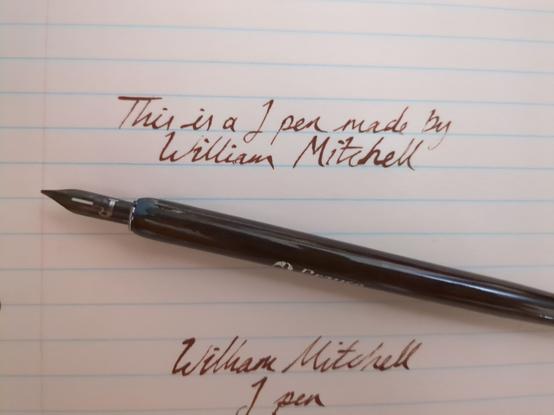 This is a J pen made by
William Mitchell
J
William Mitchell
J pen